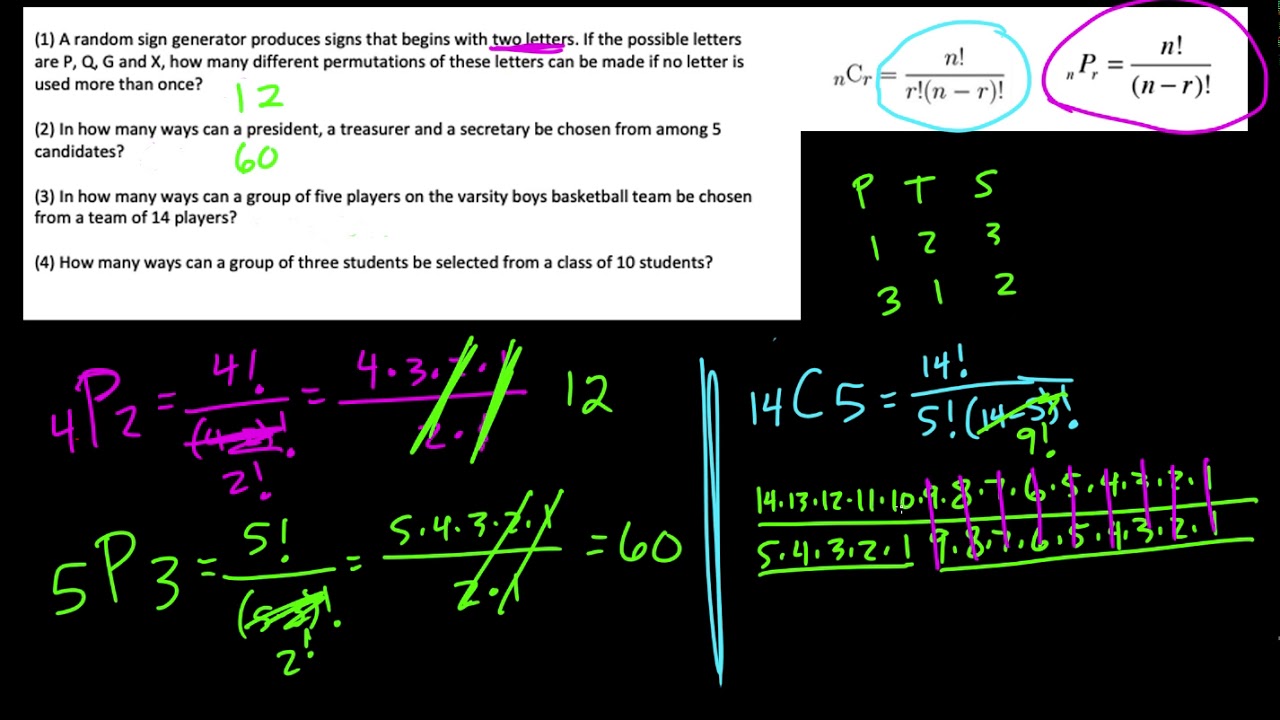 (1) A random sign generator produces signs that begins with two letters. If the possible letters
are P, Q, G and X, how many different permutations of these letters can be made if no letter is
used more than once?
12
(2) In how many ways can a president, a treasurer and a secretary be chosen from among 5
candidates?
60
(3) In how many ways can a group of five players on the varsity boys basketball team be chosen
from a team of 14 players?
(4) How many ways can a group of three students be selected from a class of 10 students?
nCr = n! / r!(n − r)!
nPr = n! / (n − r)!
P T S
1 2 3
3 1 2
4P2 = 4! / (4-2)! 2! = 4·3·2·1 / 2·1 12
5P3 = 5! / (5-3)! 2! = 5·4·3·2·1 / 2·1 = 60
14C5 = 14! / 5!(14-5)! 9!
14·13·12·11·10·9·8·7·6·5·4·3·2·1
5·4·3·2·1 9·8·7·6·5·4·3·2·1